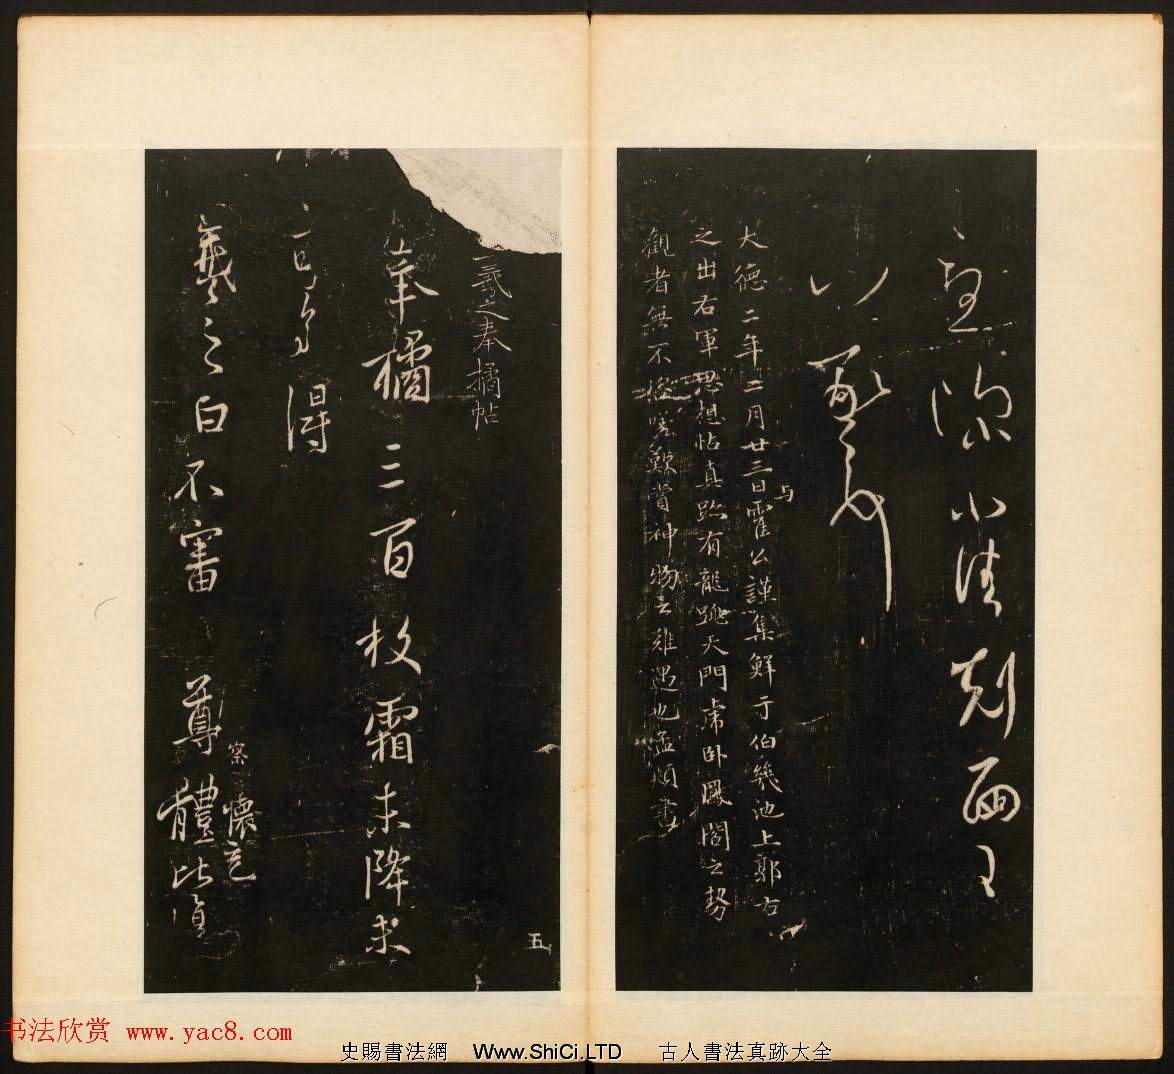 与
大德二年二月廿三日霍公謹集鮮于伯幾池上郭右
之出右軍思想帖真跡有龍跳天門虎卧鳳閣之勢
觀者無不咨嗟歎賞神物之難遇也孟頫書
羲之奉橘帖
奉橘三百枚霜未降未
可多得
察 懷充
羲之白不審 尊體比復
五
书法欣赏 www.yac8.com
史賜書法網 Www.ShiCi.LTD 古人書法真跡大全